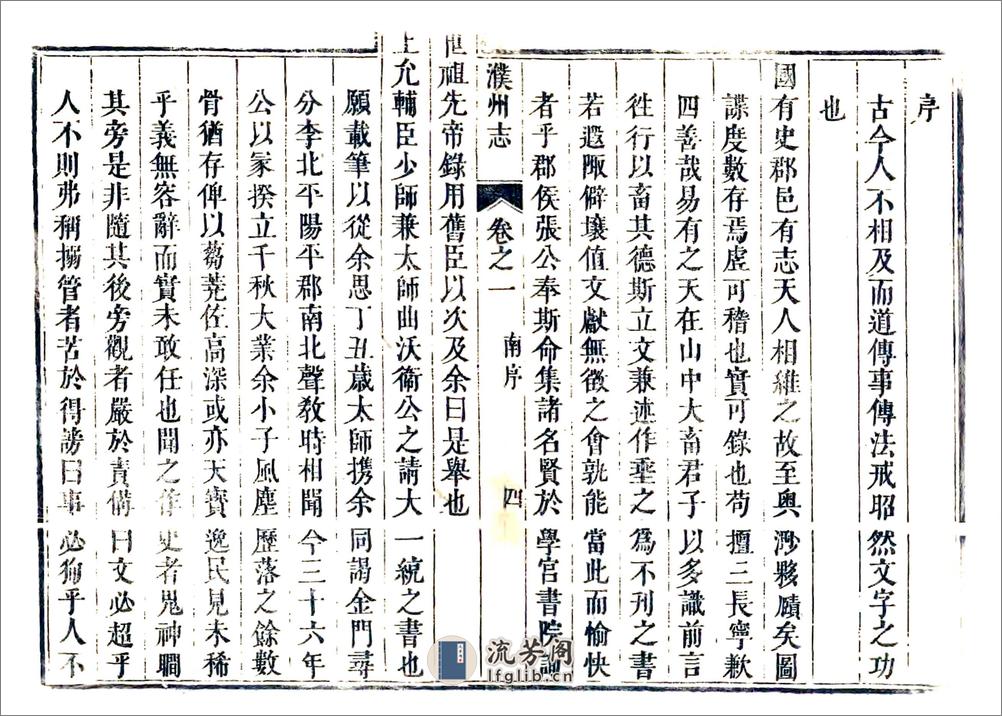 序
古今人不相及而道傳事傳法戒昭然文字之功
也
國有史郡邑有志天人相維之故至奧渺夥賾矣圖
諜度數存焉虛可稽也實可錄也苟擅三長寧歉
四善哉易有之天在山中大畜君子以多識前言
徃行以畜其德斯立文兼述作埀之為不刋之書
若遐陬僻壤值文獻無徵之會孰能當此而愉快
者乎郡侯張公奉斯命集諸名賢於學官書院
濮州志 卷之一 南序 四
世祖先帝錄用舊臣以次及余曰是舉也
上允輔臣少師兼太師曲沃衛公之請大一統之書也
願載筆以從余思丁丑歲太師携余同謁金門尋
分李北平陽平郡南北聲教時相聞今三十六年
公以冢揆立千秋大業余小子風塵歷落之餘數
骨猶存俾以蒭蕘佐高深或亦天寶逸民見未稀
乎義無容辭而實未敢任也聞之作史者鬼神瞷
其旁是非隨其後旁觀者嚴於責備曰文必超乎
人不則弗稱搦管者苦於得謗曰事必狥乎人不
流芳阁
lfglib.cn